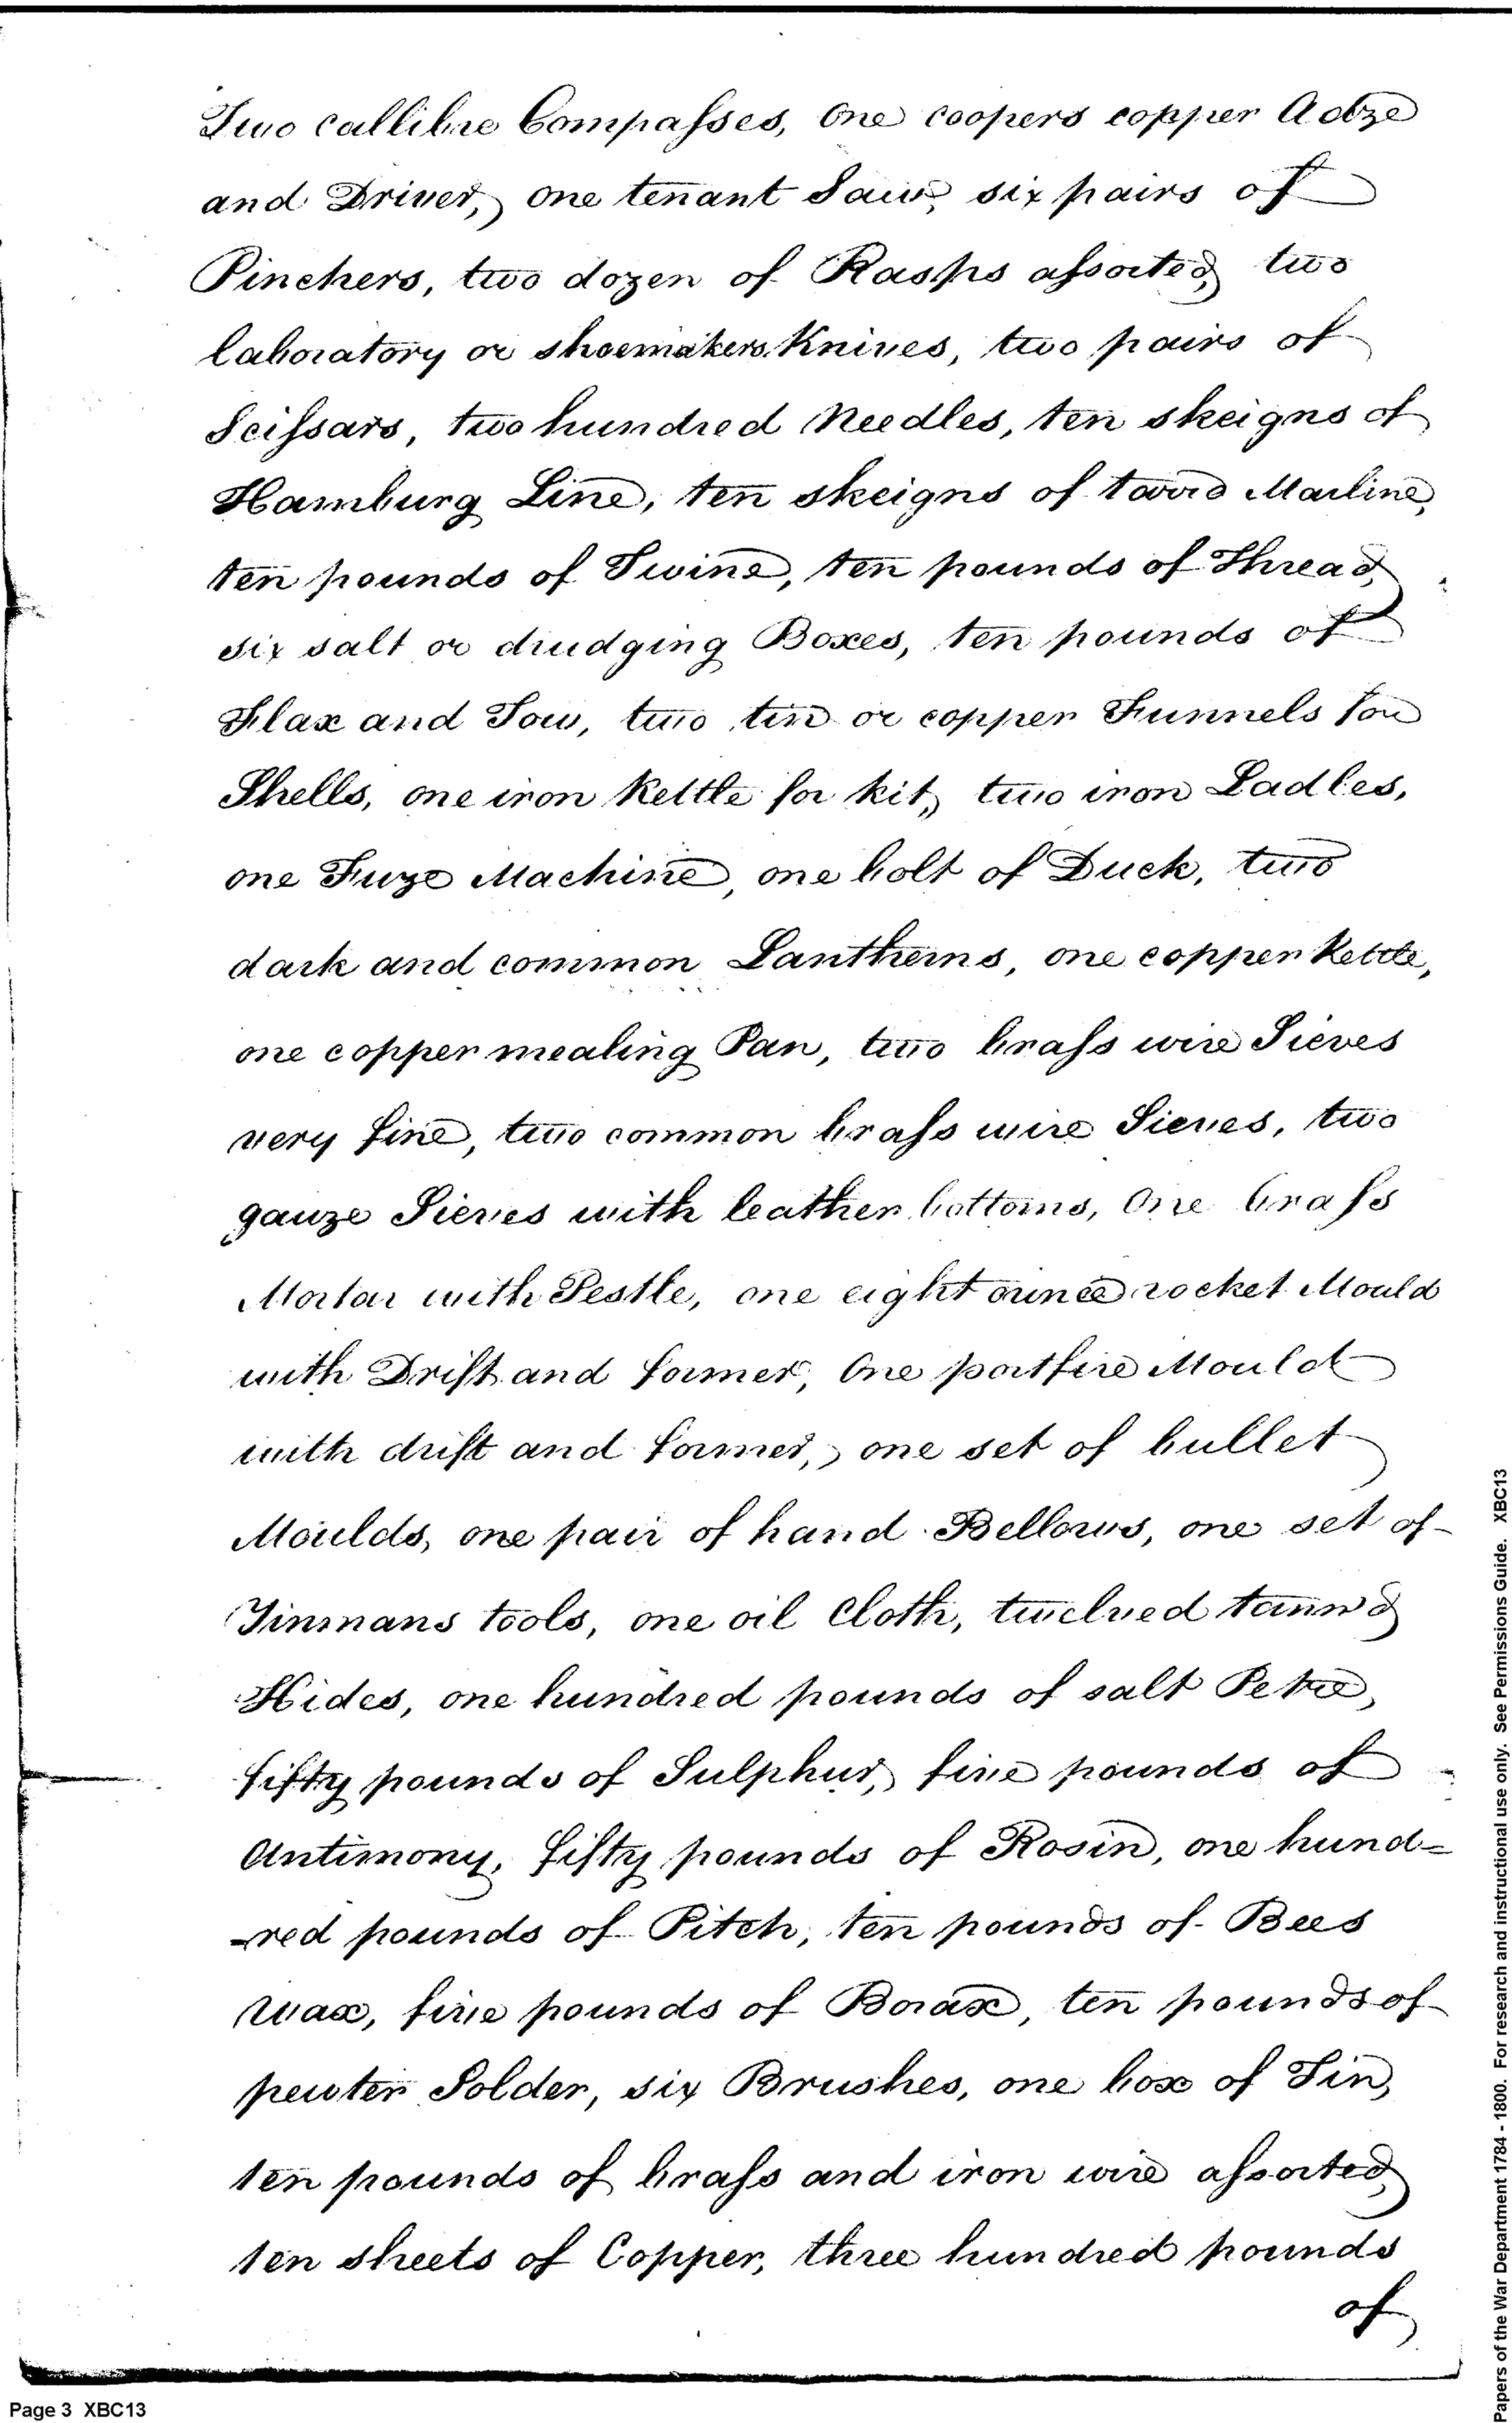 Two callibre Compasses, One coopers copper Adze
and Driver, one tenant Saw, six pairs of
Pinchers, two dozen of Rasps assorted, two
laboratory or shoemakers Knives, two pairs of
Scissars, two hundred Needles, ten skeigns of
Hamburg Line, ten skeigns of tarr'd Marline,
ten pounds of Twine, ten pounds of Thread,
six salt or drudging Boxes, ten pounds of
Flax and Tow, two tin or copper Funnels for
Shells, one iron Kettle for kit, two iron Ladles,
one Fuze Machine, one bolt of Duck, two
dark and common Lantherns, one copper Kettle,
one copper mealing Pan, two brass wire Sieves
very fine, two common brass wire Sieves, two
gauze Sieves with leather bottoms, One brass
Mortar with Pestle, one eight ounce rocket Mould
with Drift and former, One portfire Mould
with drift and former, one set of bullet
Moulds, one pair of hand Bellows, one set of
Tinmans tools, one oil Cloth, twelved tann'd
Hides, one hundred pounds of salt Petre,
fifty pounds of Sulphur, five pounds of
Antimony, fifty pounds of Rosin, one hund=
-red pounds of Pitch, ten pounds of Bees
wax, five pounds of Borax, ten pounds of
pewter Solder, six Brushes, one box of Tin,
ten pounds of brass and iron wire assorted,
ten sheets of Copper, three hundred pounds
of
Page 3 XBC13
Papers of the War Department 1784 - 1800. For research and instructional use only. See Permissions Guide. XBC13